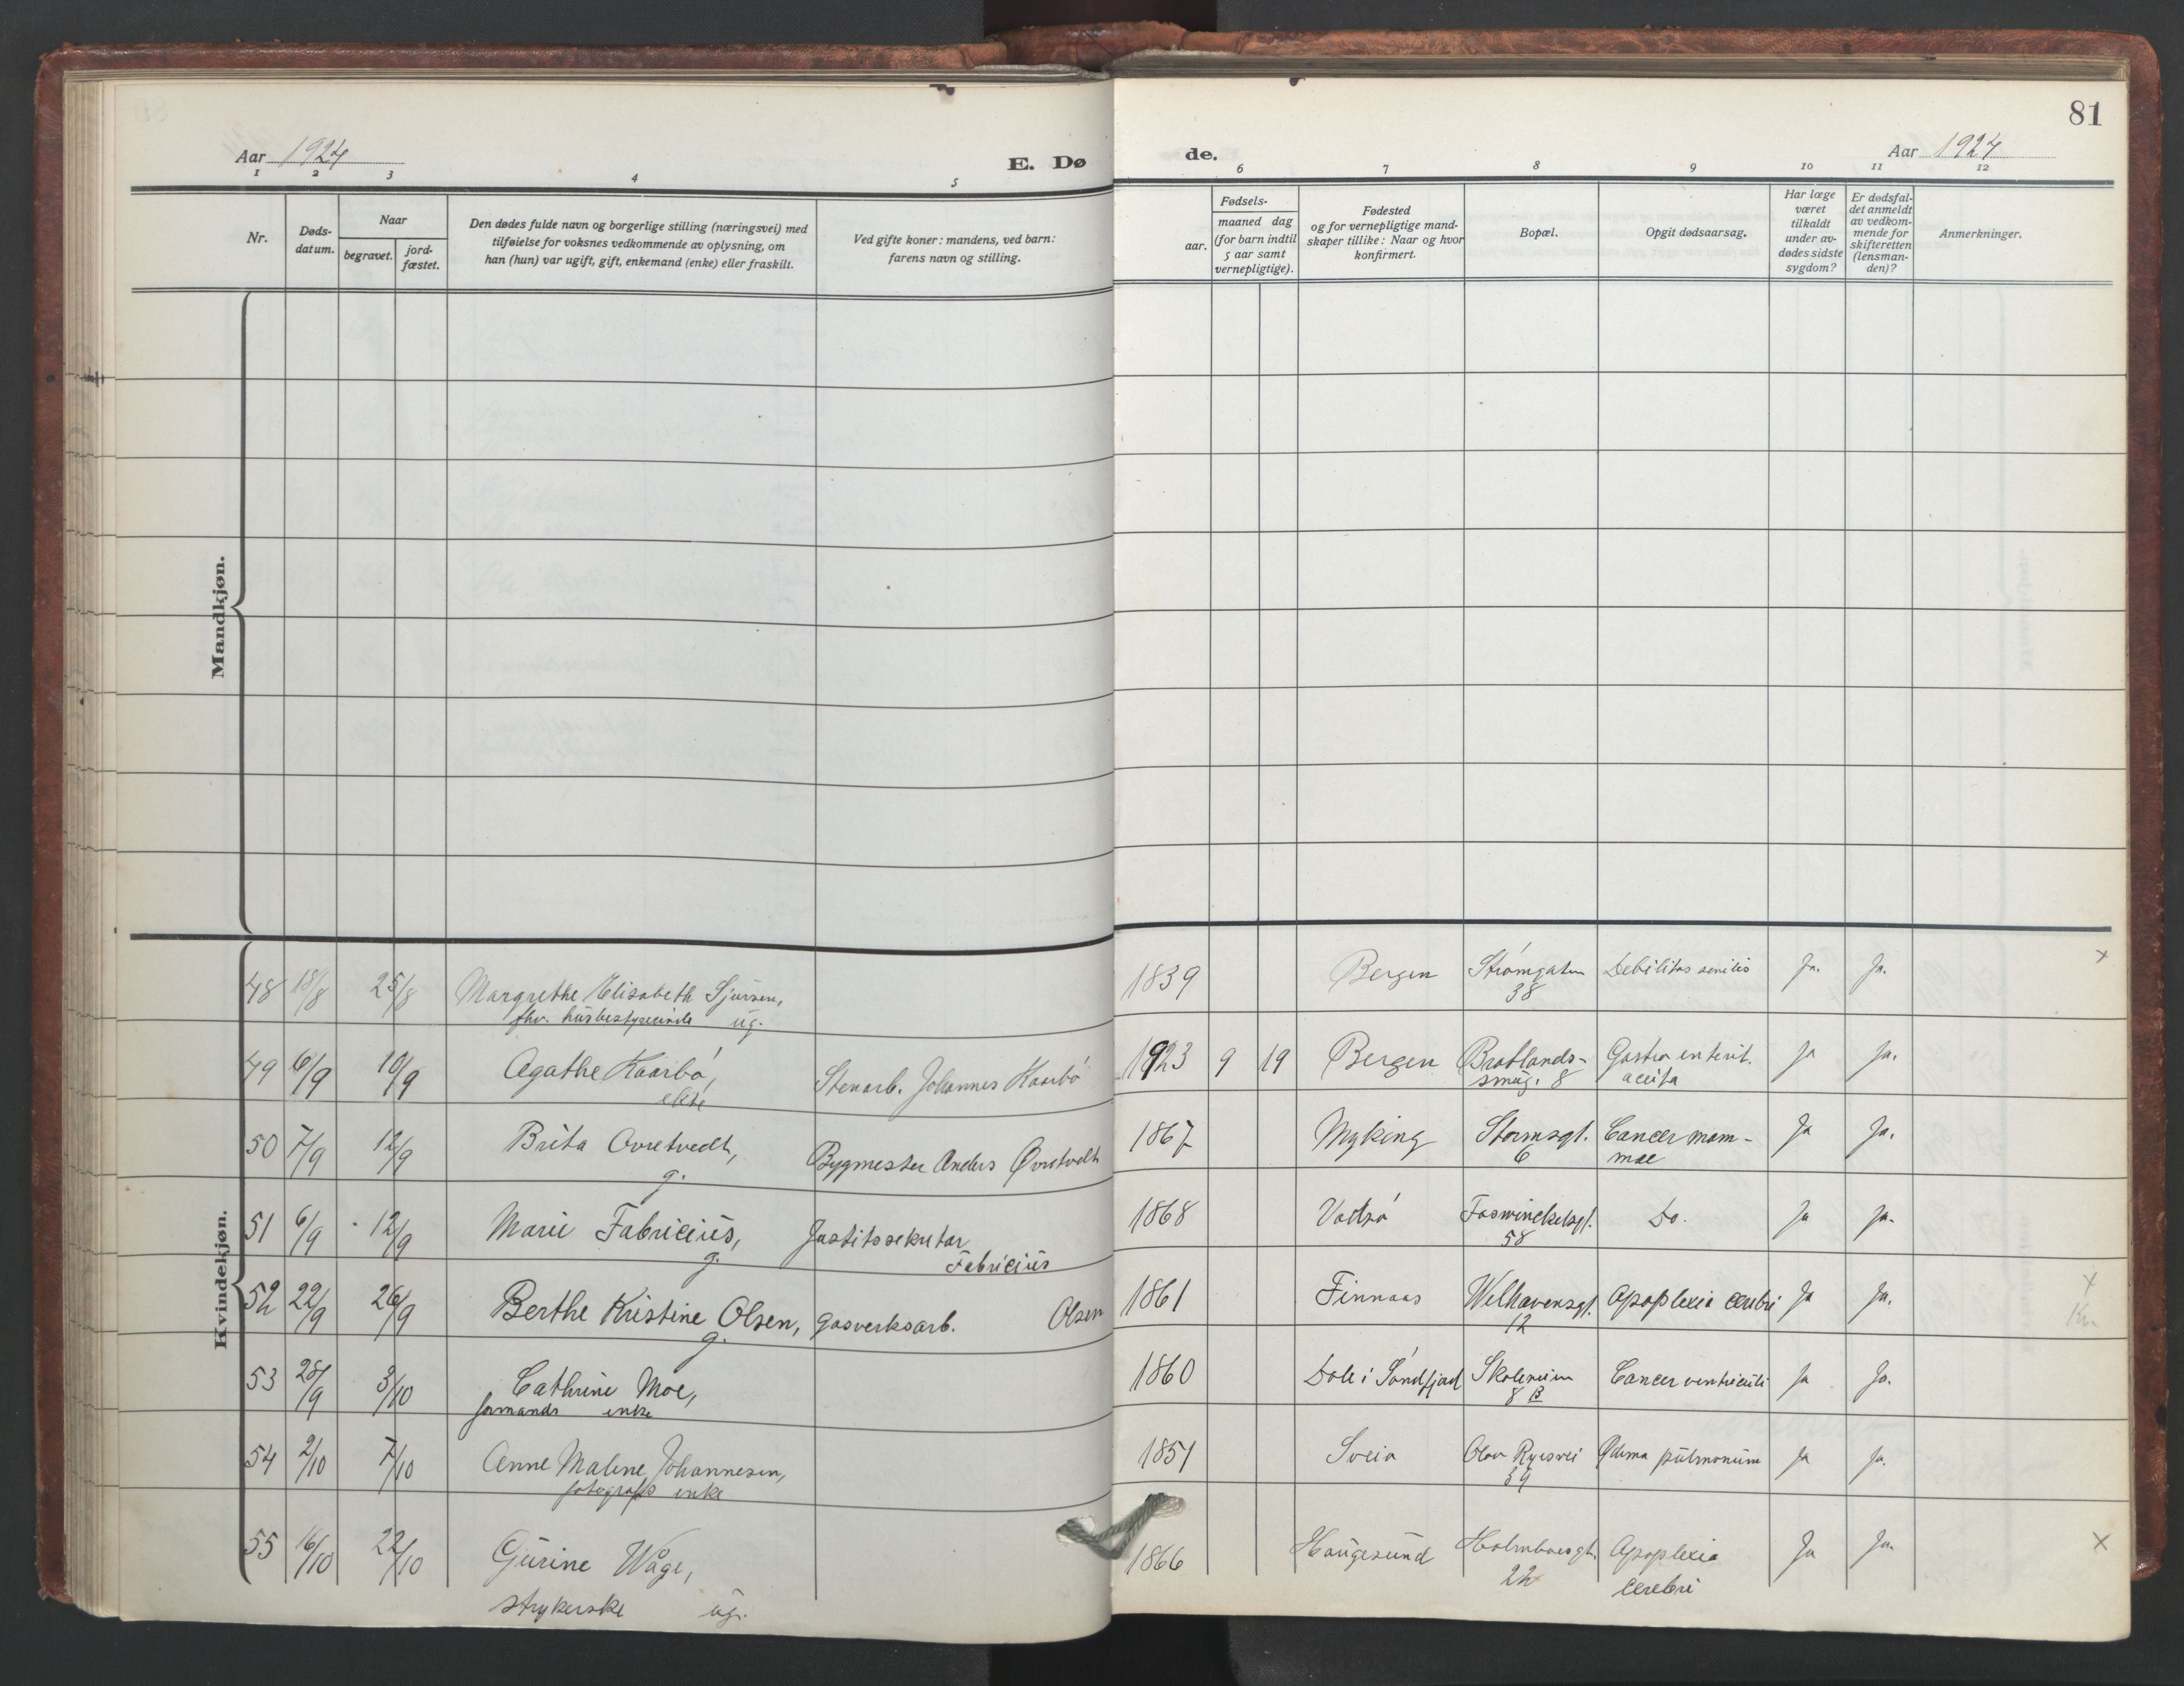 81
Aar 1924
E. Dø
de.
Aar 1924
1 2 3 4 5 6 7 8 9 10 11 12
Nr.
Døds-
datum.
Naar
begravet.
jord-
fæstet.
Den dødes fulde navn og borgerlige stilling (næringsvei) med
tilføielse for voksnes vedkommende av oplysning, om
han (hun) var ugift, gift, enkemand (enke) eller fraskilt.
Ved gifte koner: mandens, ved barn:
farens navn og stilling.
aar.
Fødsels-
maaned dag
(for barn indtil
5 aar samt
vernepligtige).
Fødested
og for vernepligtige mand-
skaper tillike: Naar og hvor
konfirmert.
Bopæl.
Opgit dødsaarsag.
Har læge
været
tilkaldt
under av-
dødes sidste
sygdom?
Er dødsfal-
det anmeldt
av vedkom-
mende for
skifteretten
(lensman-
den)?
Anmerkninger.
Mandkjøn.
Kvindekjøn.
48 18/8 25/8 Margrethe Elisabeth Sjursen, 1839 Bergen Strömgaten Debilitas senilis Ja. Ja. x
fhv. husbestyrerinde ug. 38
49 6/9 10/9 Agathe Kaarbö, Stenarb. Johannes Kaarbö 1923 9 19 Bergen Bratlands- Gastro enterit. Ja Ja.
ekte smug. 8 acuta
50 7/9 12/9 Brita Øvretvedt, Bygmester Anders Øvretvedt 1867 Myking Stormsgt. Cancer mam- Ja Ja.
g. 6 mae
51 6/9 12/9 Marie Fabricius, Justitssekretær 1868 Vadsö Foswinckelsgt. Do. Ja Ja.
g. Fabricius 58
52 22/9 26/9 Berthe Kristine Olsen, Gasverksarb. Olsen 1861 Finnaas Welhavensgt. Apoplexia cerebri Ja Ja. x
g. 12
53 28/9 3/10 Cathrine Moe, 1860 Dale i Söndfjord Skolerum Cancer ventriculi Ja Ja.
formands enke 8 B
54 2/10 7/10 Anne Malene Johannesen, 1851 Sveio Olav Ryesvei Ødema pulmonum Ja Ja.
fotografs enke 39
55 16/10 22/10 Gurine Våge, 1866 Haugesund Holmboesgt. Apoplexia Ja Ja. x
strykerske ug. 22 cerebri